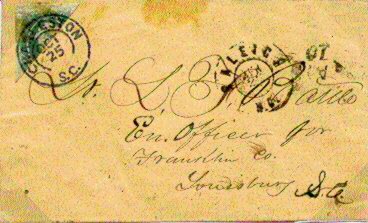 CHARLESTON
OCT
25
S.C.
RALEIGH
N.C.
10
Lt. L. F. Battle
En. Officer for
Franklin Co.
Louisburg